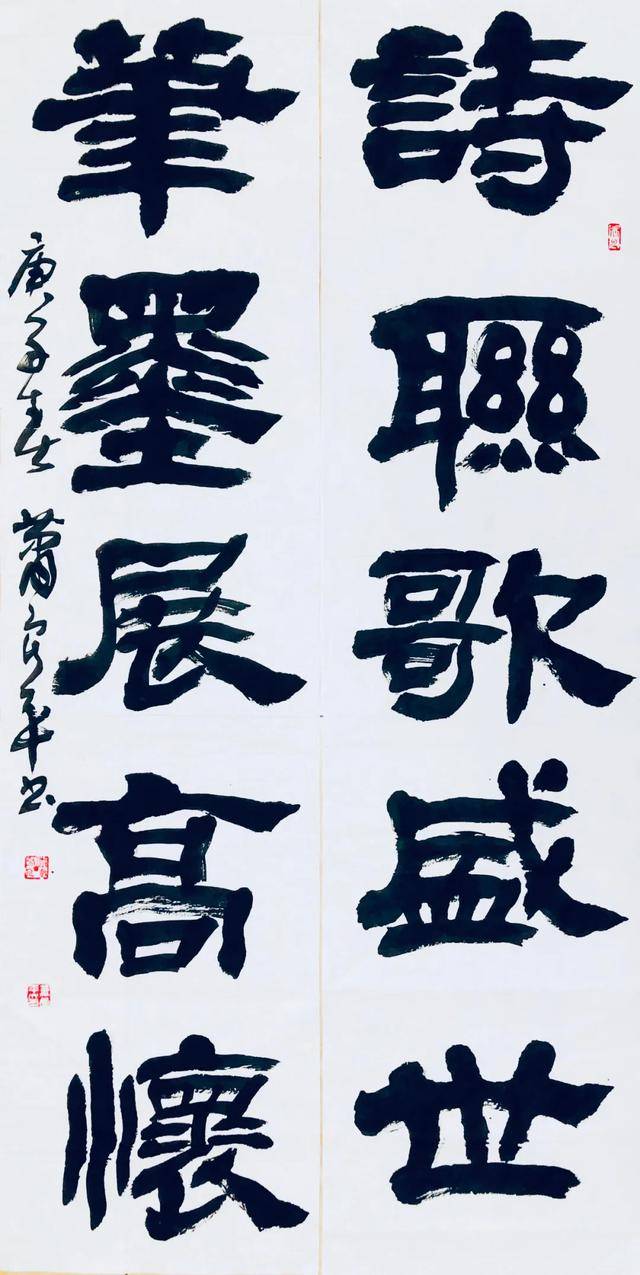 詩聯歌盛世
筆墨展高懷
庚子春 蕭宜平书